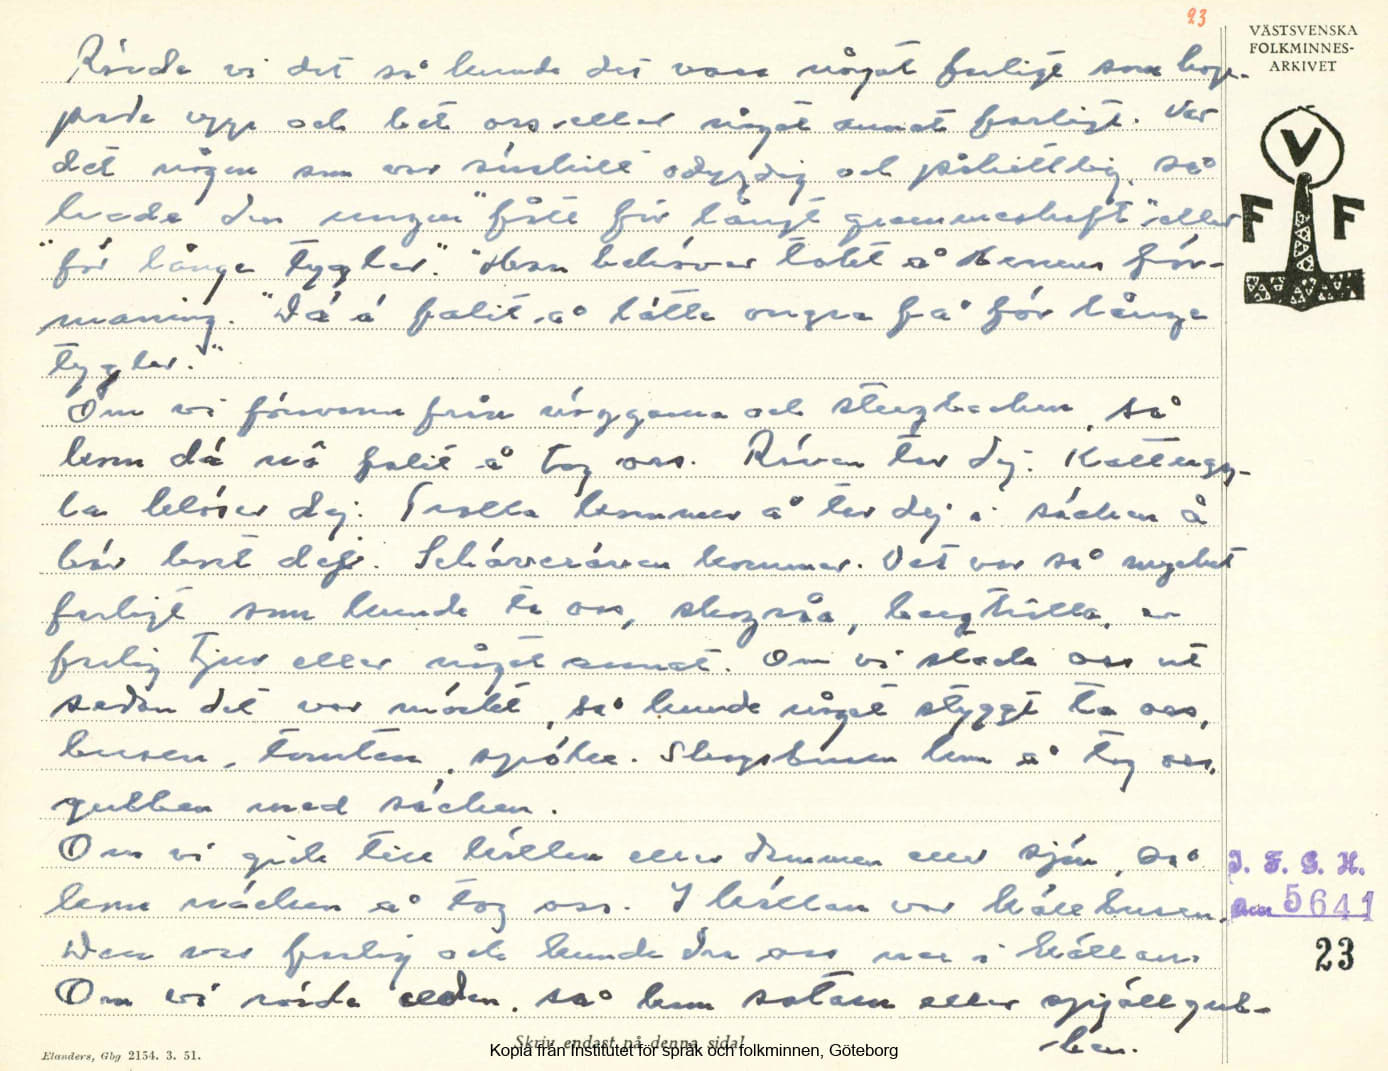 23
VÄSTSVENSKA
FOLKMINNES-
ARKIVET
V
F F
Rörde vi det så kunde det vara något farligt som
och bet oss eller något annat farligt. Var
det någon som var särskilt odygdig och påhittig, så
hade den ungen "fått för långt grammeskaft" eller
"för långa tyglar". "Han behöver tokt å Herrens för-
maning." "Dä ä falit å låtta ongra få för långa
tyglar."
Om vi försvann från väggarna och stugbacken, så
kom dä nô falit å tog oss. Räven tar dej. Kattugg-
la klöser dej. Trolla kommer å tar dej i säcken å
bär bort dej. Skäreräven kommer. Det var så mycket
farligt som kunde ta oss, skogsråa, bergtrolla, en
farlig tjur eller något annat. Om vi stack oss ut
sedan det var mörkt, så kunde något styggt ta oss,
busen, tomten, spöke. Skogsbusen kom å tog oss,
gubben med säcken.
Om vi gick till källan eller dammen eller sjön, så
kom näcken å tog oss. I källan var källbusen.
Den var farlig och kunde dra oss ner i källan.
Om vi rörde elden, så kom sotarn eller spjällgub-
ben.
I. F. G. H.
5641
23
Elanders, Gbg 2154. 3. 51.
Skriv endast på denna sida!
Kopia från Institutet för språk och folkminnen, Göteborg